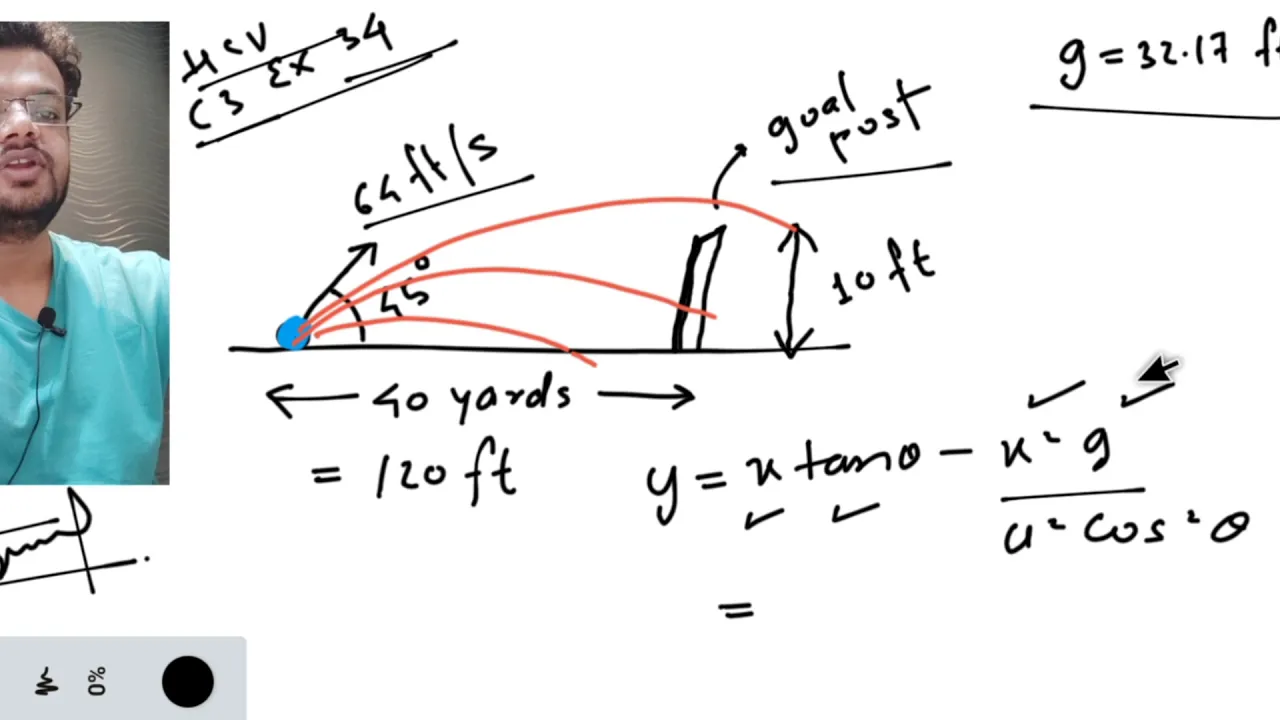 HCV
C3 EX 34
g = 32.17 ft
64 ft/s
goal
post
45°
10 ft
40 yards
= 120 ft
y = x tanθ - x² g
u² cos² θ
=
0%